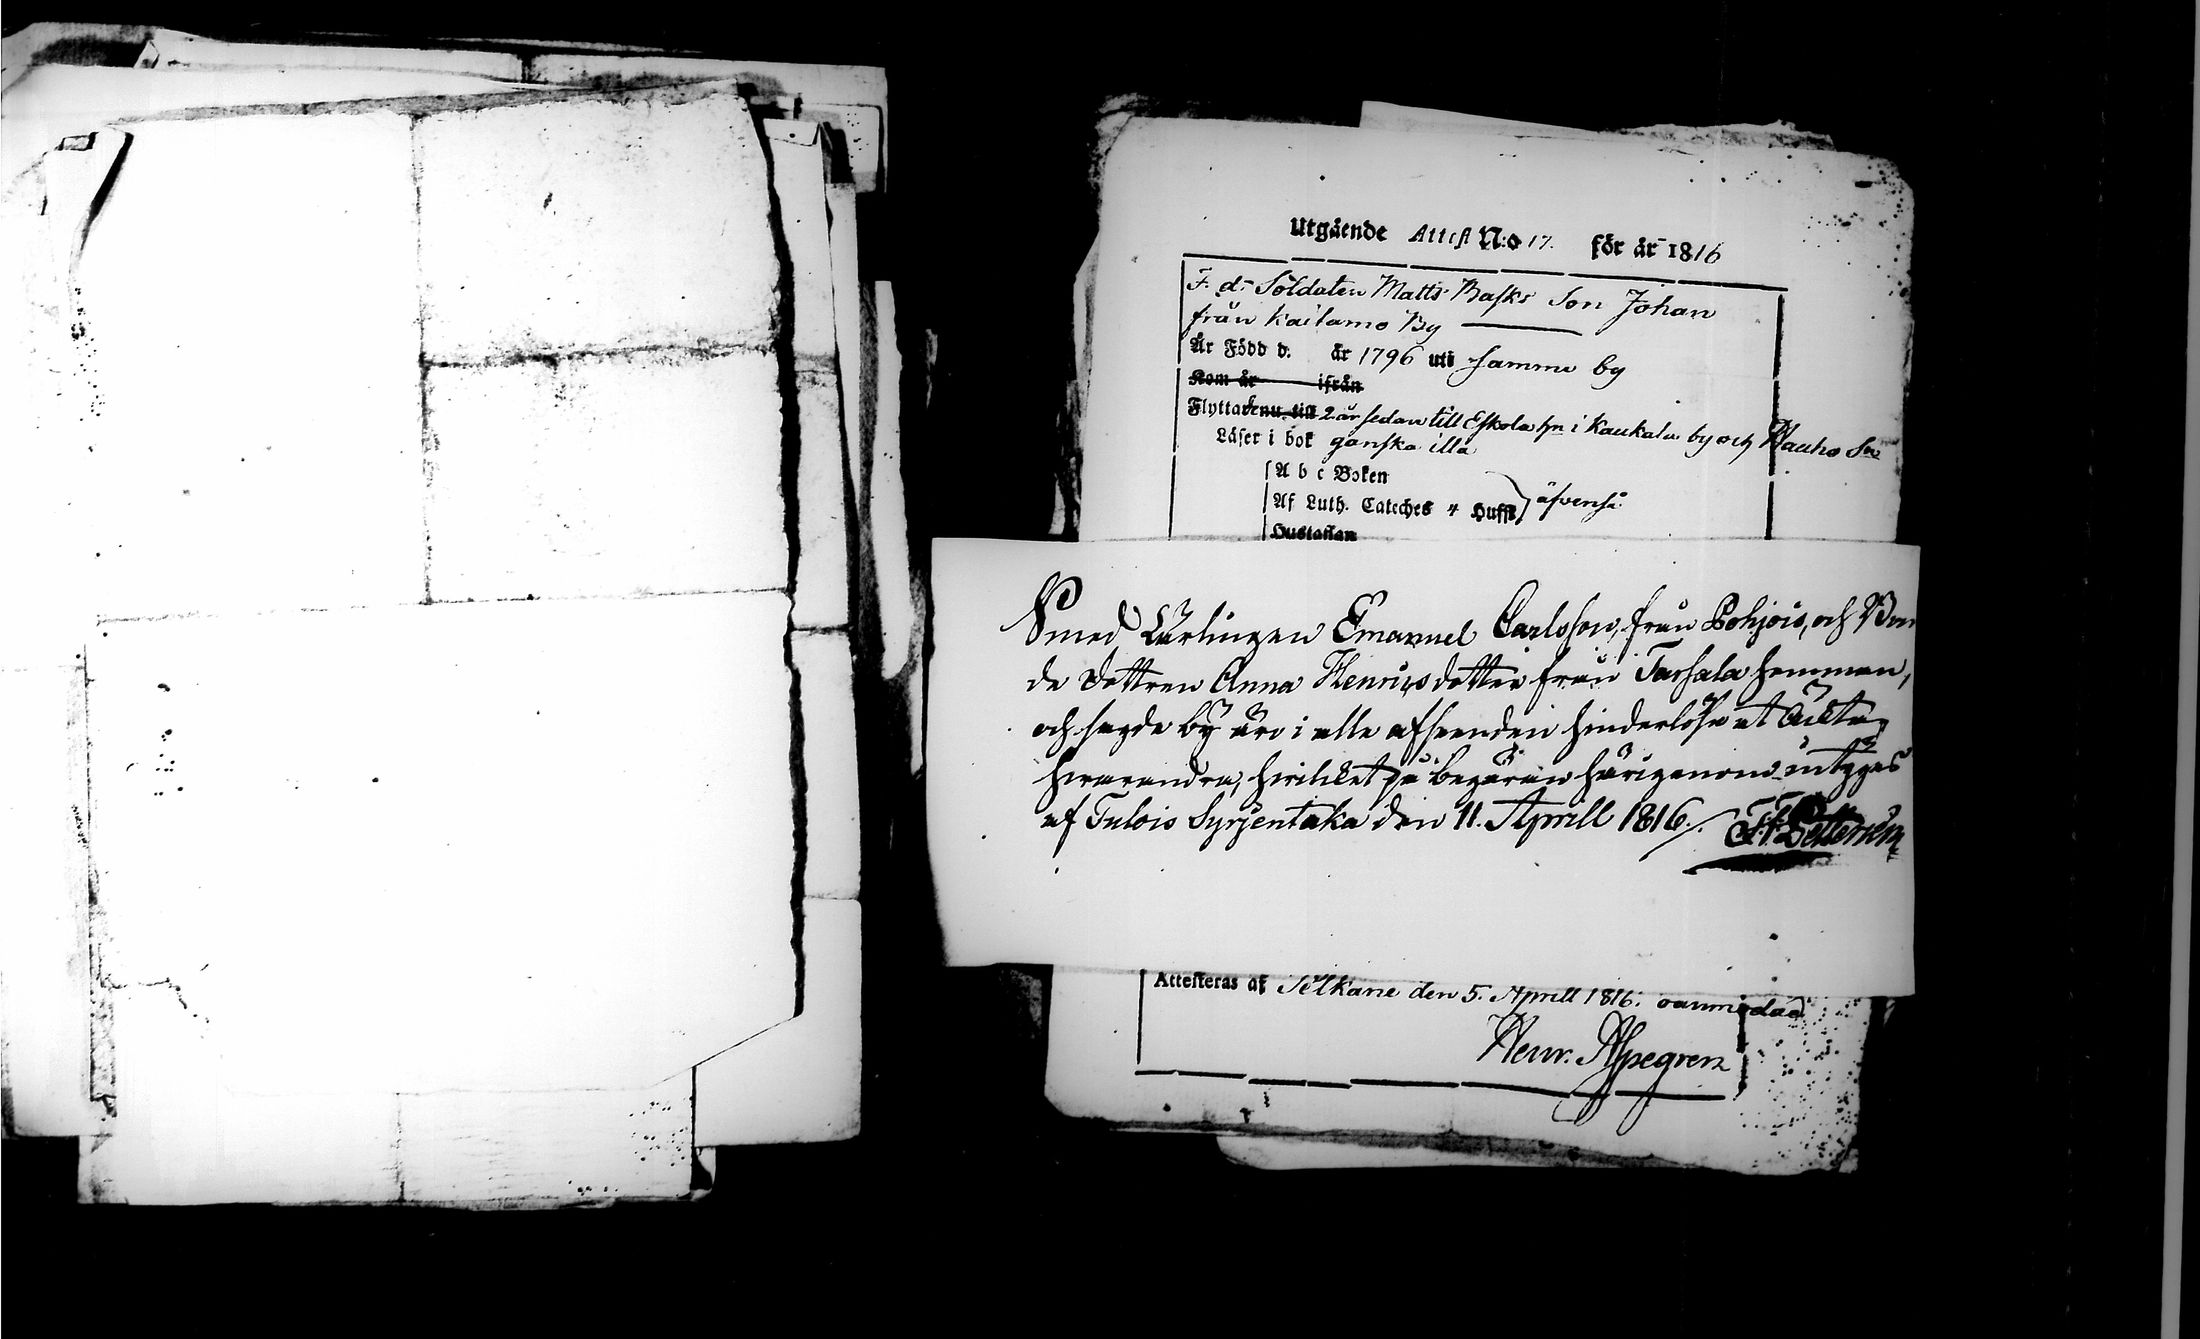 Utgående Attest N:o 17. för år 1816
F. d. Soldaten Matts Rasks Son Johan
från Kailamo By
År Född d. år 1796 uti samma by
Kom år ifrån
Flyttade nu till 2 år sedan till Eskola hn i Kaukala by och Hauho Sn
Läser i bok ganska illa
A b c Boken
Af Luth. Cateches 4 Hufst. äfvenså
Hustaflan
Smed Lärlingen Emanuel Carlsson, från Pohjois, och Bon
de dottren Anna Henricsdotter från Tarsala hemman,
och sagde by äro i alla afseenden hinderlöse at äckta
hvarandra, hvilket på begäran härigenom intygas
af Tulois Syrjentaka den 11. Aprill 1816.
Attesteras af Sälkäne den 5. Aprill 1816.
Henr. Aspegren